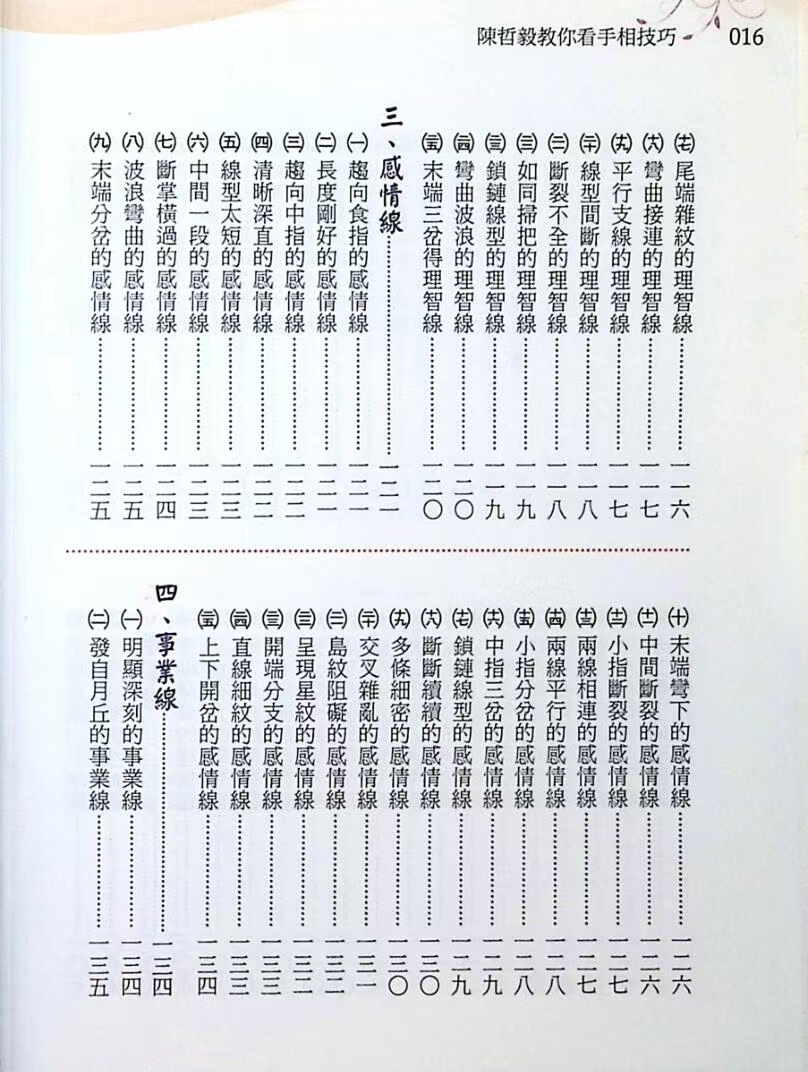 陳哲毅教你看手相技巧 016
(十七) 尾端雜紋的理智線……一一六
(十八) 彎曲接連的理智線……一一七
(十九) 平行支線的理智線……一一七
(二十) 線型間斷的理智線……一一八
(二一) 斷裂不全的理智線……一一八
(二二) 如同掃把的理智線……一一九
(二三) 鎖鏈線型的理智線……一一九
(二四) 彎曲波浪的理智線……一二〇
(二五) 末端三岔得理智線……一二〇
三、感情線……一二一
(一) 趨向食指的感情線……一二一
(二) 長度剛好的感情線……一二一
(三) 趨向中指的感情線……一二二
(四) 清晰深直的感情線……一二二
(五) 線型太短的感情線……一二三
(六) 中間一段的感情線……一二三
(七) 斷掌橫過的感情線……一二四
(八) 波浪彎曲的感情線……一二五
(九) 末端分岔的感情線……一二五
(十) 末端彎下的感情線……一二六
(十一) 中間斷裂的感情線……一二六
(十二) 小指斷裂的感情線……一二七
(十三) 兩線相連的感情線……一二七
(十四) 兩線平行的感情線……一二八
(十五) 小指分岔的感情線……一二八
(十六) 中指三岔的感情線……一二九
(十七) 鎖鏈線型的感情線……一二九
(十八) 斷斷續續的感情線……一三〇
(十九) 多條細密的感情線……一三〇
(二十) 交叉雜亂的感情線……一三一
(二一) 島紋阻礙的感情線……一三二
(二二) 呈現星紋的感情線……一三二
(二三) 開端分支的感情線……一三三
(二四) 直線細紋的感情線……一三三
(二五) 上下開岔的感情線……一三四
四、事業線……一三四
(一) 明顯深刻的事業線……一三四
(二) 發自月丘的事業線……一三五